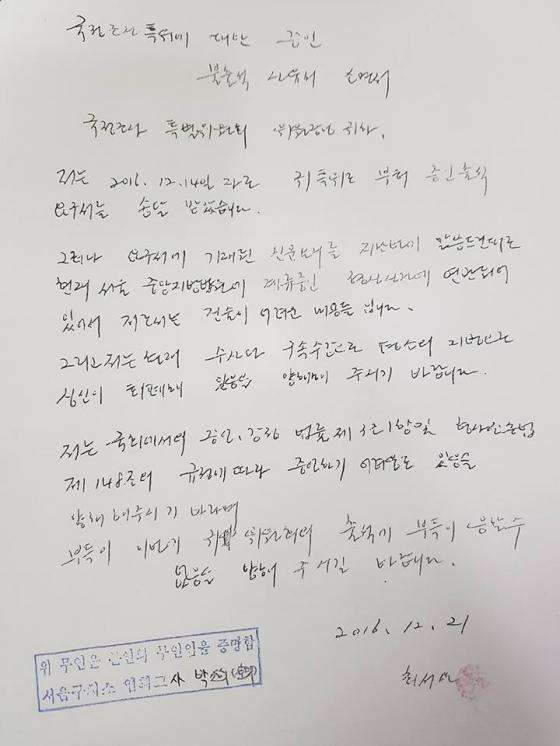 국정조사 특위에 대한 증인
불출석 사유서 소명서
국정조사 특별위원회 위원장님 귀하.
저는 2016. 12. 14일 자로 귀 특위로 부터 증인출석
요구서를 송달 받았습니다.
그러나 요구서에 기재된 신문요지를
현재 서울 중앙지방법원에 계류중인 형사사건에 연관되어
있어서 저로서는 진술이 어려운 내용들 입니다.
그리고 저는 현재 수사다 구속수감으로 평소의 지병으로
심신이 피폐해 있음을 양해해 주시기 바랍니다.
저는 국회에서의 증언, 감정 법률 제 3조 1항 및 형사소송법
제 148조의 규정에 따라 증언하기 어려움도 있음을
양해 해 주시기 바라며
부득이 이번에 귀 위원회의 출석에 부득이 응할수
없음을 양해 주시길 바랍니다.
2016. 12. 21
위 무인은 본인의 무인임을 증명함
서울구치소